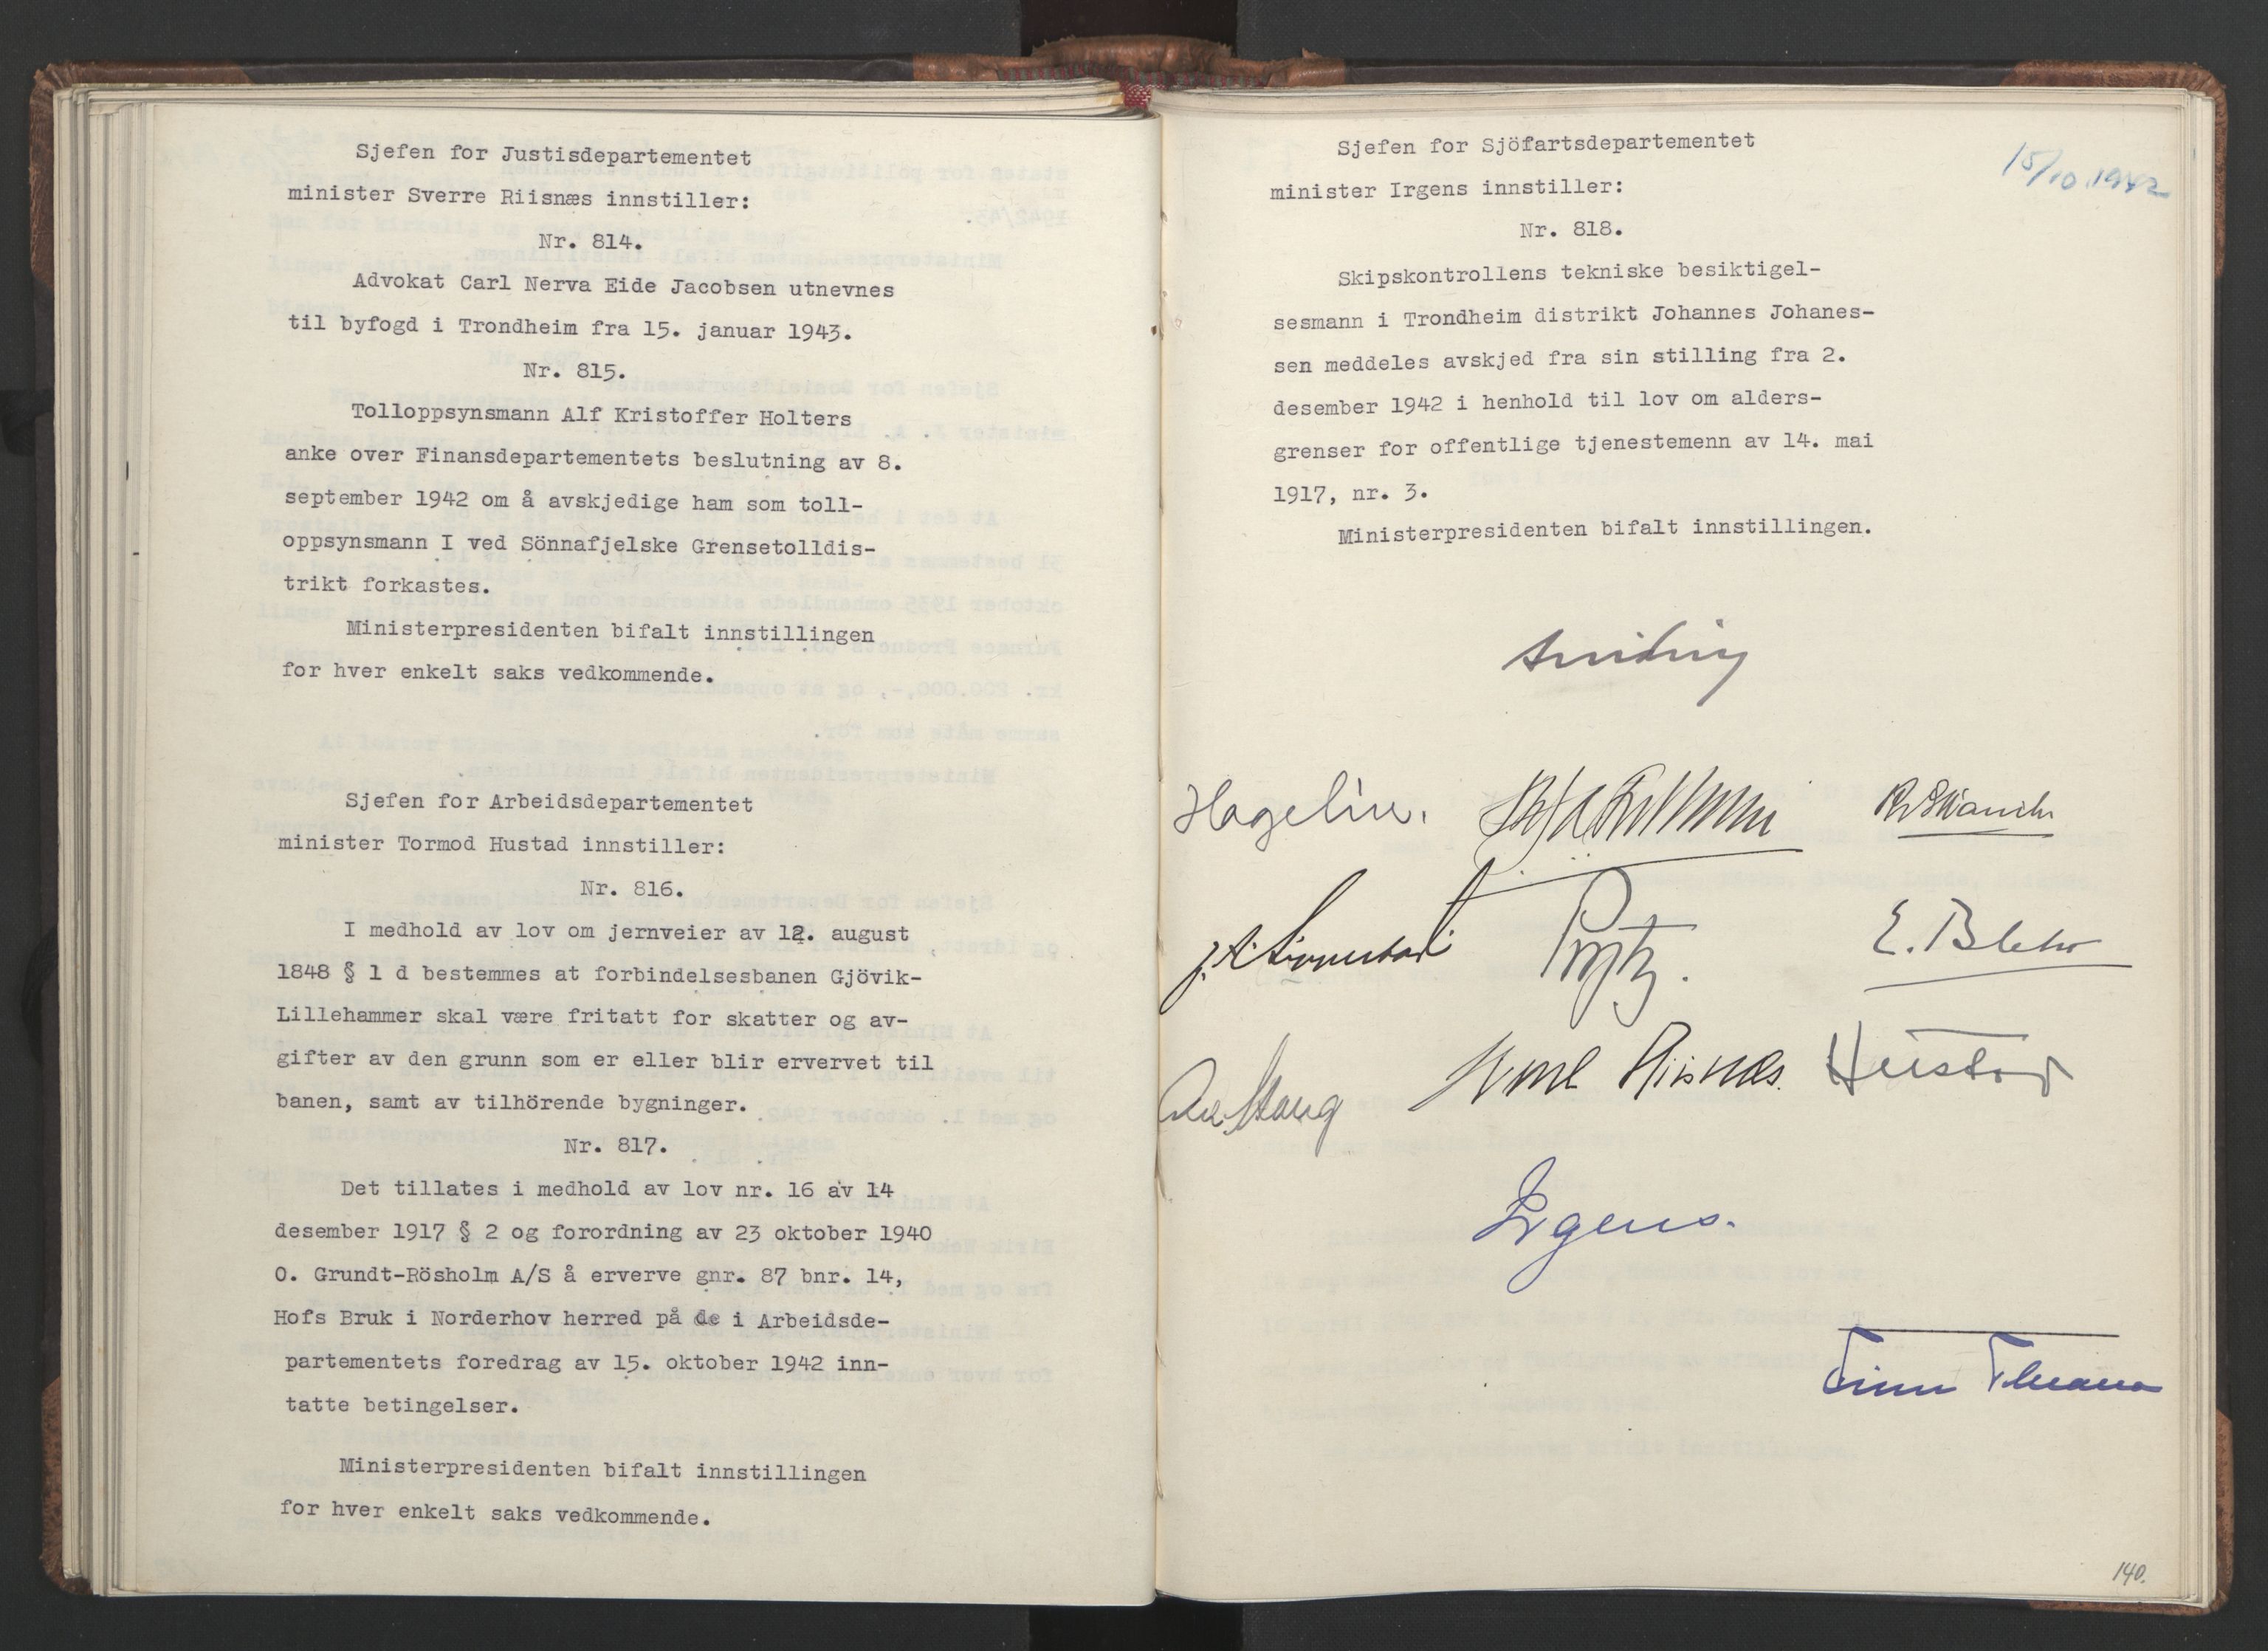 Sjefen for Justisdepartementet
minister Sverre Riisnæs innstiller:
Nr. 814.
Advokat Carl Nerva Eide Jacobsen utnevnes
til byfogd i Trondheim fra 15. januar 1943.
Nr. 815.
Tolloppsynsmann Alf Kristoffer Holters
anke over Finansdepartementets beslutning av 8.
september 1942 om å avskjedige ham som toll-
oppsynsmann I ved Sönnafjelske Grensetolldis-
trikt forkastes.
Ministerpresidenten bifalt innstillingen
for hver enkelt saks vedkommende.
Sjefen for Arbeidsdepartementet
minister Tormod Hustad innstiller:
Nr. 816.
I medhold av lov om jernveier av 12. august
1848 § 1 d bestemmes at forbindelsesbanen Gjövik-
Lillehammer skal være fritatt for skatter og av-
gifter av den grunn som er eller blir ervervet til
banen, samt av tilhörende bygninger.
Nr. 817.
Det tillates i medhold av lov nr. 16 av 14
desember 1917 § 2 og forordning av 23 oktober 1940
O. Grundt-Rösholm A/S å erverve gnr. 87 bnr. 14,
Hofs Bruk i Norderhov herred på de i Arbeidsde-
partementets foredrag av 15. oktober 1942 inn-
tatte betingelser.
Ministerpresidenten bifalt innstillingen
for hver enkelt saks vedkommende.
15/10 1942
Sjefen for Sjöfartsdepartementet
minister Irgens innstiller:
Nr. 818.
Skipskontrollens tekniske besiktigel-
sesmann i Trondheim distrikt Johannes Johanes-
sen meddeles avskjed fra sin stilling fra 2.
desember 1942 i henhold til lov om alders-
grenser for offentlige tjenestemenn av 14. mai
1917, nr. 3.
Ministerpresidenten bifalt innstillingen.
Hagelin.
E. Blehr
Riisnæs. Hustad
Irgens.
140.